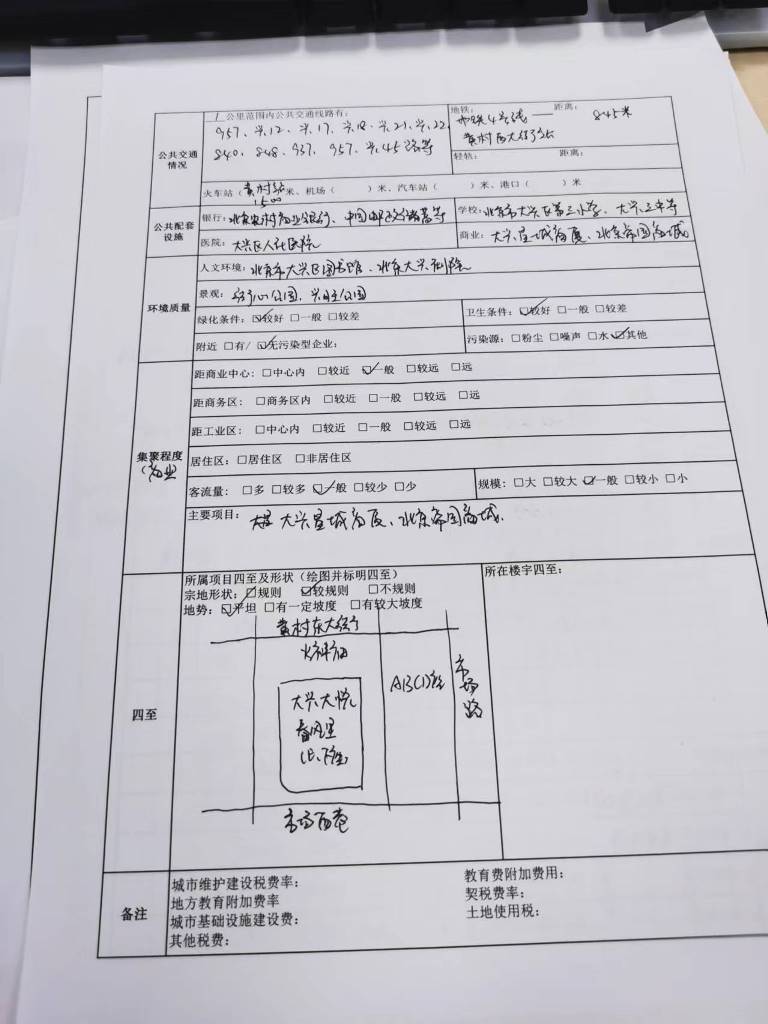 1 公里范围内公共交通线路有：
957、兴12、兴17、兴18、兴21、兴22、
840、848、937、957、兴45路等
地铁： 地铁4号线—— 距离： 845米
黄村西大街站
轻轨： 距离：
公共交通
情况
火车站（黄村站1500）米、机场（ ）米、汽车站（ ）米、港口（ ）米
公共配套
设施
银行：北京农村商业银行、中国邮政储蓄等
学校：北京市大兴区第三小学、大兴三中等
医院：大兴区人民医院
商业：大兴星城商厦、北京帝园商城
环境质量
人文环境：北京市大兴区图书馆、北京大兴剧院
景观：街心公园、兴旺公园
绿化条件：☑较好 □一般 □较差
卫生条件：☑较好 □一般 □较差
附近 □有/ ☑无污染型企业：
污染源：□粉尘 □噪声 □水 ☑其他
集聚程度
（商业
距商业中心：□中心内 □较近 ☑一般 □较远 □远
距商务区：□商务区内 □较近 □一般 □较远 □远
距工业区：□中心内 □较近 □一般 □较远 □远
居住区：□居住区 □非居住区
客流量：□多 □较多 ☑一般 □较少 □少
规模：□大 □较大 ☑一般 □较小 □小
主要项目： 大兴星城商厦、北京帝园商城.
四至
所属项目四至及形状（绘图并标明四至）
宗地形状：□规则 ☑较规则 □不规则
地势：☑平坦 □有一定坡度 □有较大坡度
所在楼宇四至：
黄村东大街
火神庙
大兴大悦
春风里
市场路
市场西巷
备注
城市维护建设税费率：
教育费附加费用：
地方教育附加费率
契税费率：
城市基础设施建设费：
土地使用税：
其他税费：